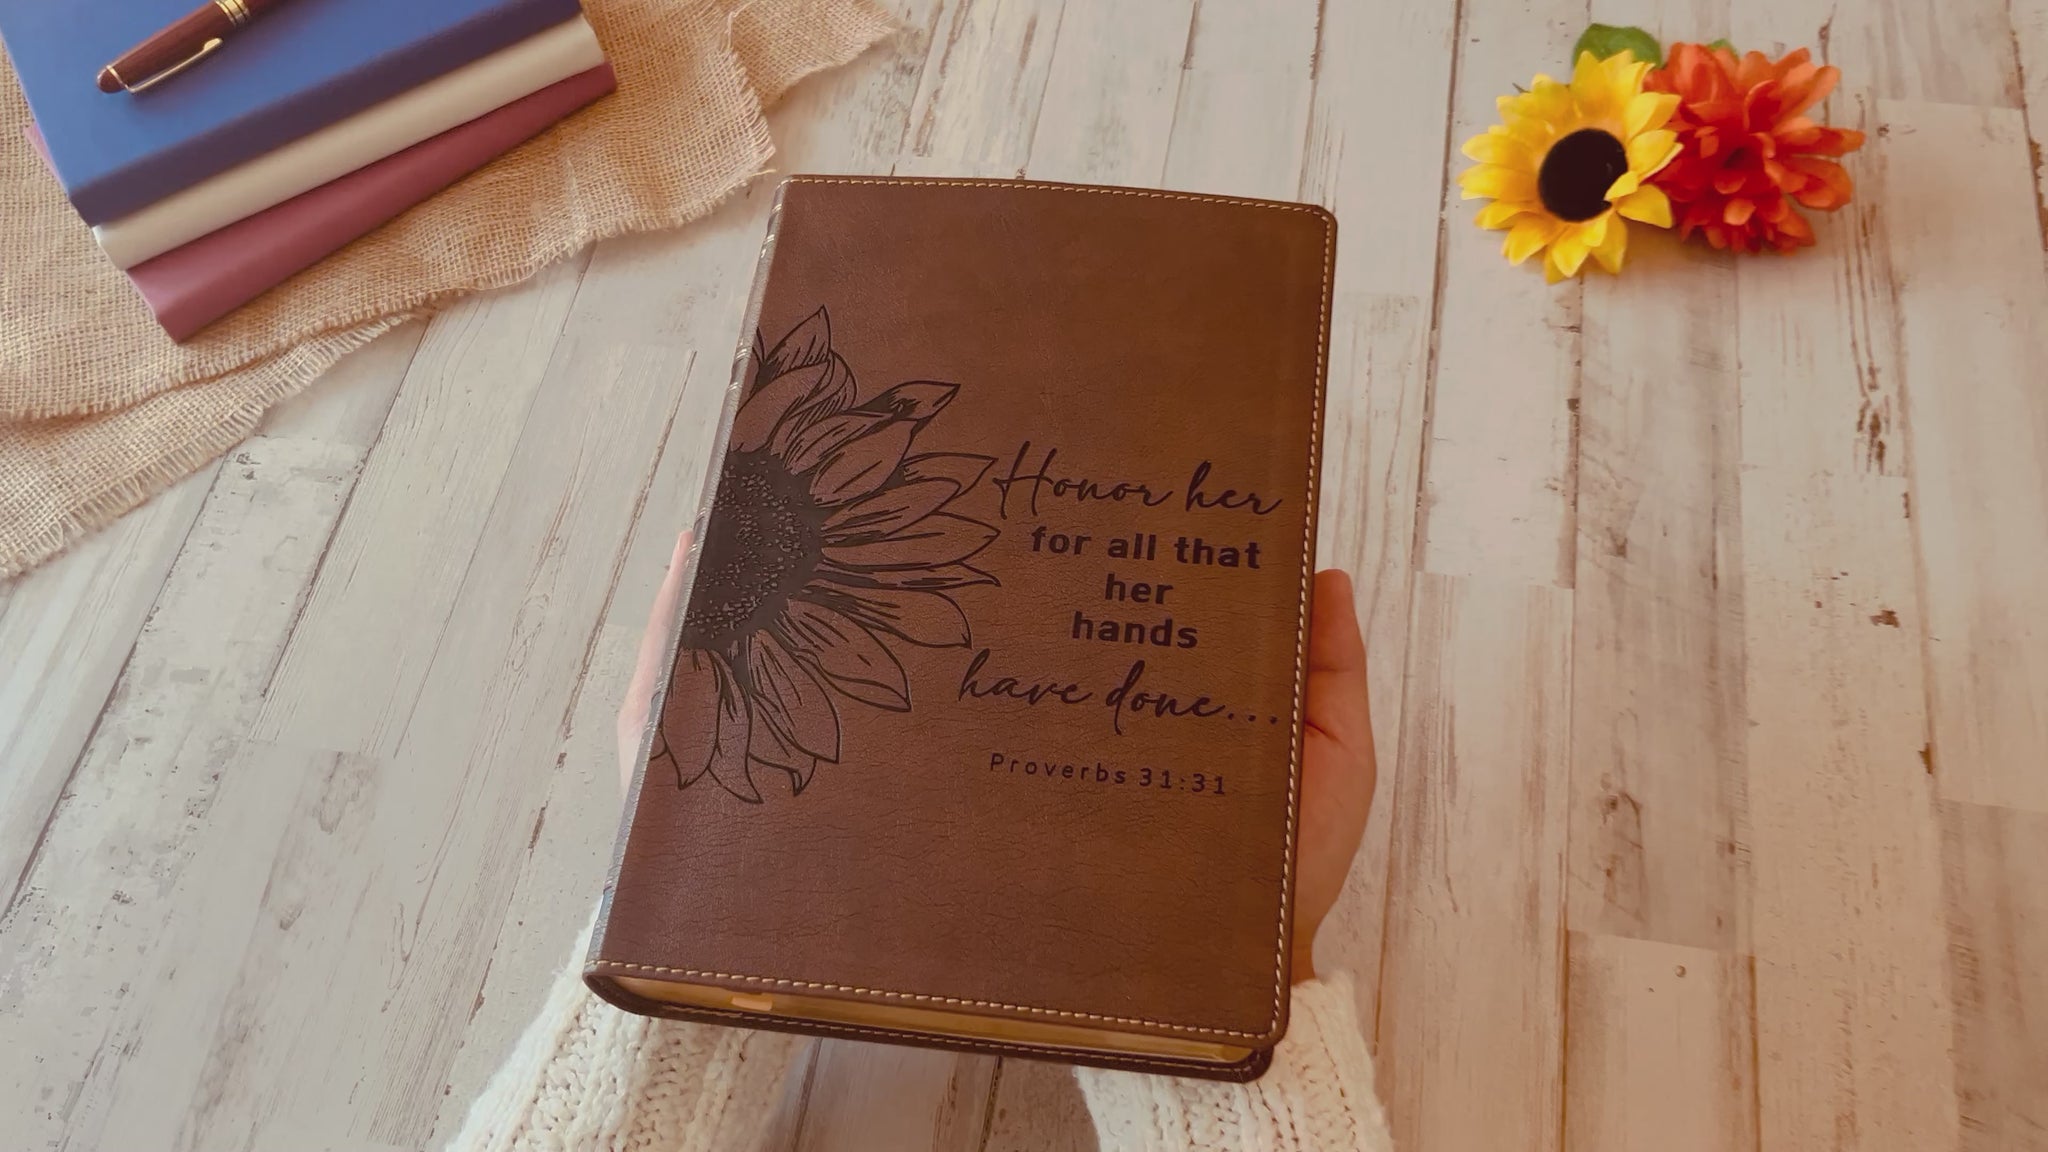 Honor her
for all that
her
hands
have done...
Proverbs 31:31